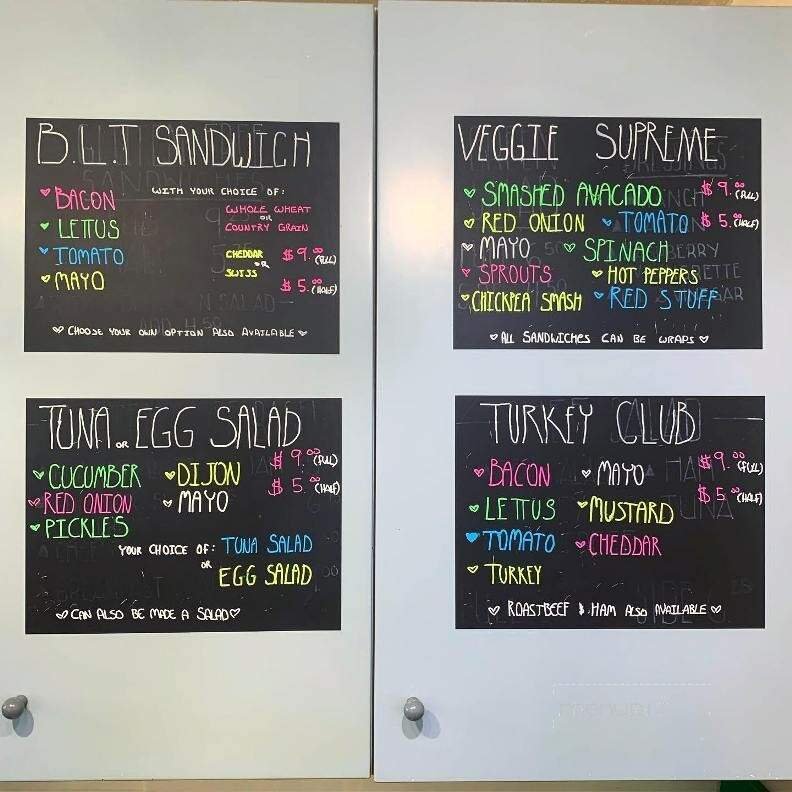 B.L.T SANDWICH
BACON
LETTUS
TOMATO
MAYO
WITH YOUR CHOICE OF:
WHOLE WHEAT
OR
COUNTRY GRAIN
CHEDDAR
OR
SWISS
$9.00 (FULL)
$5.00 (HALF)
CHOOSE YOUR OWN OPTION ALSO AVAILABLE
VEGGIE SUPREME
SMASHED AVACADO $9.00 (FULL)
RED ONION TOMATO $5.00 (HALF)
MAYO SPINACH
SPROUTS HOT PEPPERS
CHICKPEA SMASH RED STUFF
ALL SANDWICHES CAN BE WRAPS
TUNA OR EGG SALAD
CUCUMBER DIJON $9.00 (FULL)
RED ONION MAYO $5.00 (HALF)
PICKLES
YOUR CHOICE OF: TUNA SALAD
OR
EGG SALAD
CAN ALSO BE MADE A SALAD
TURKEY CLUB
BACON MAYO $9.00 (FULL)
LETTUS MUSTARD $5.00 (HALF)
TOMATO CHEDDAR
TURKEY
ROASTBEEF & HAM ALSO AVAILABLE